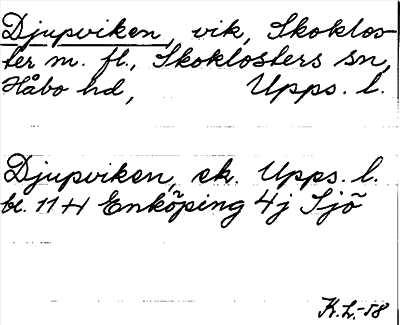 Djupviken, vik, Skoklos-
ter m. fl., Skoklosters sn,
Håbo hd, Upps. l.
Djupviken, ek. Upps. l.
bl. 11 H Enköping 4j Sjö
K.L.-58